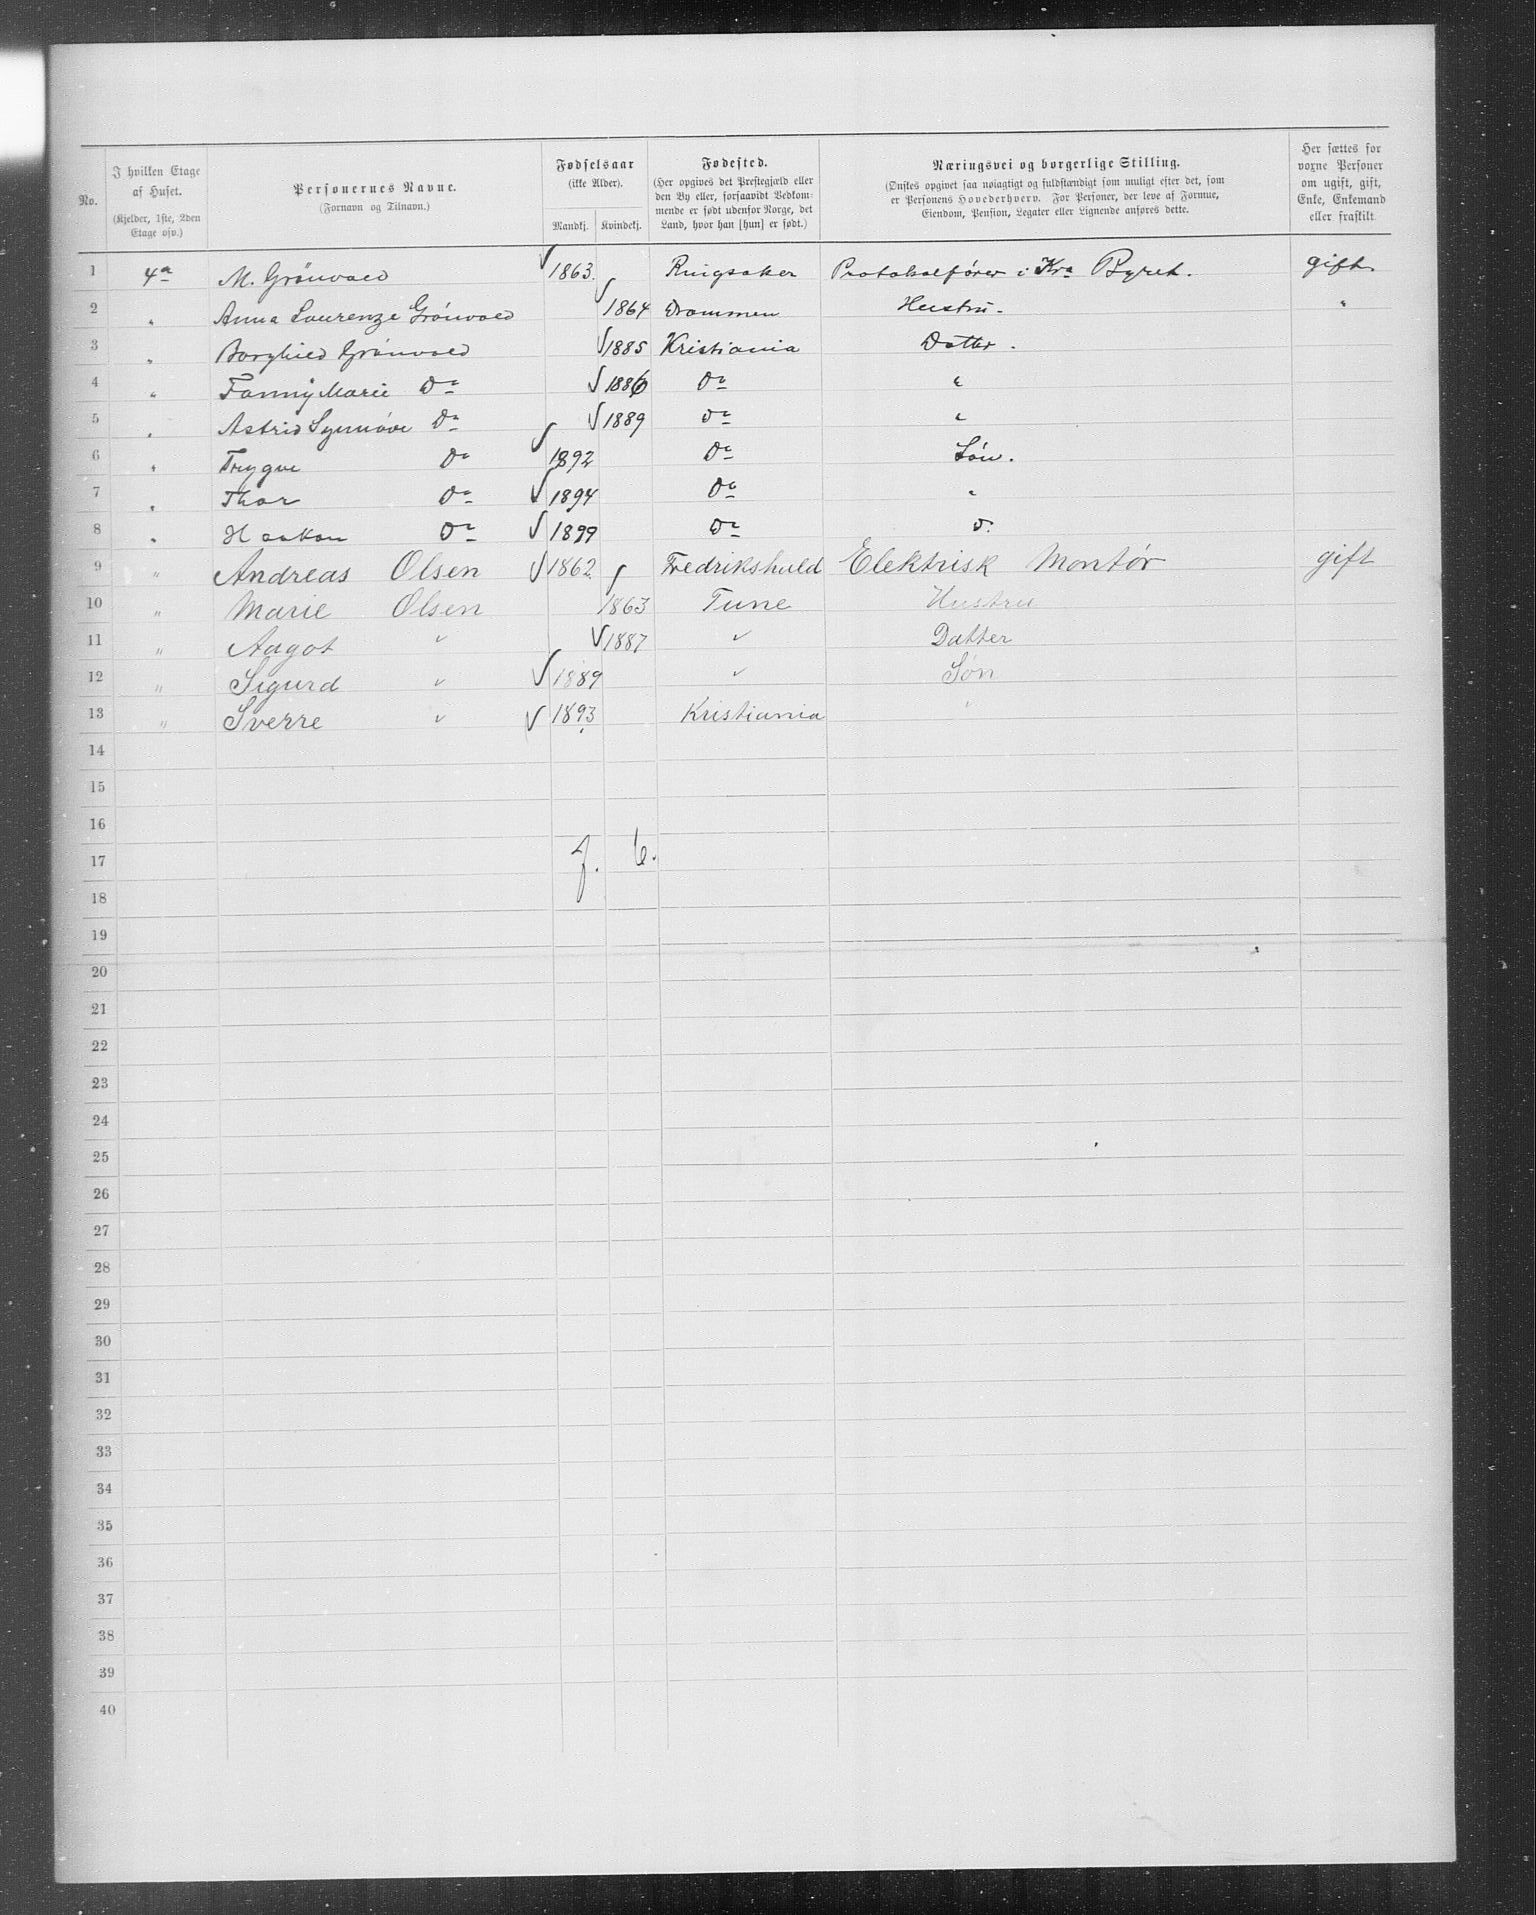 No. I hvilken Etage af Huset. (Kjelder, 1ste, 2den Etage osv.) Personernes Navne. (Fornavn og Tilnavn.) Fødselsaar (ikke Alder). Mandkj. Kvindekj. Fødested. (Her opgives det Prestegjæld eller den By eller, forsaavidt Vedkommende er født udenfor Norge, det Land, hvor han [hun] er født.) Næringsvei og borgerlige Stilling. (Ønskes opgivet saa nøiagtigt og fuldstændigt som muligt efter det, som er Personens Hovederhverv. For Personer, der leve af Formue, Eiendom, Pension, Legater eller Lignende anføres dette. Her sættes for voxne Personer om ugift, gift, Enke, Enkemand eller fraskilt.
1 4de M. Grönvold √ 1863. Ringsaker Protokolfører i Kra Byret. gift.
2 " Anna Laurenze Grönvold √ 1864 Drammen Hustru. "
3 " Borghild Grönvold √ 1885 Kristiania Datter.
4 " Fanny Marie Do √ 1886 Do "
5 " Astrid Synnöve Do √ 1889 Do "
6 " Trygve Do √ 1892 Do Sön.
7 " Thor Do √ 1894 Do "
8 " Haakon Do √ 1899 Do D.
9 " Andreas Olsen √ 1862 Fredrikshald Elektrisk Montør gift
10 " Marie Olsen √ 1863 Tune Hustru
11 " Aagot " √ 1887 " Datter
12 " Sigurd " √ 1889 " Søn
13 " Sverre " √ 1893 Kristiania "
14
15
16
17 7. 6.
18
19
20
21
22
23
24
25
26
27
28
29
30
31
32
33
34
35
36
37
38
39
40